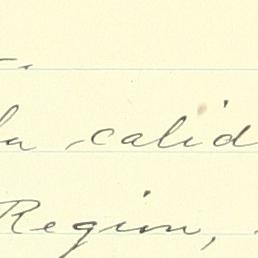 la calid
Region,